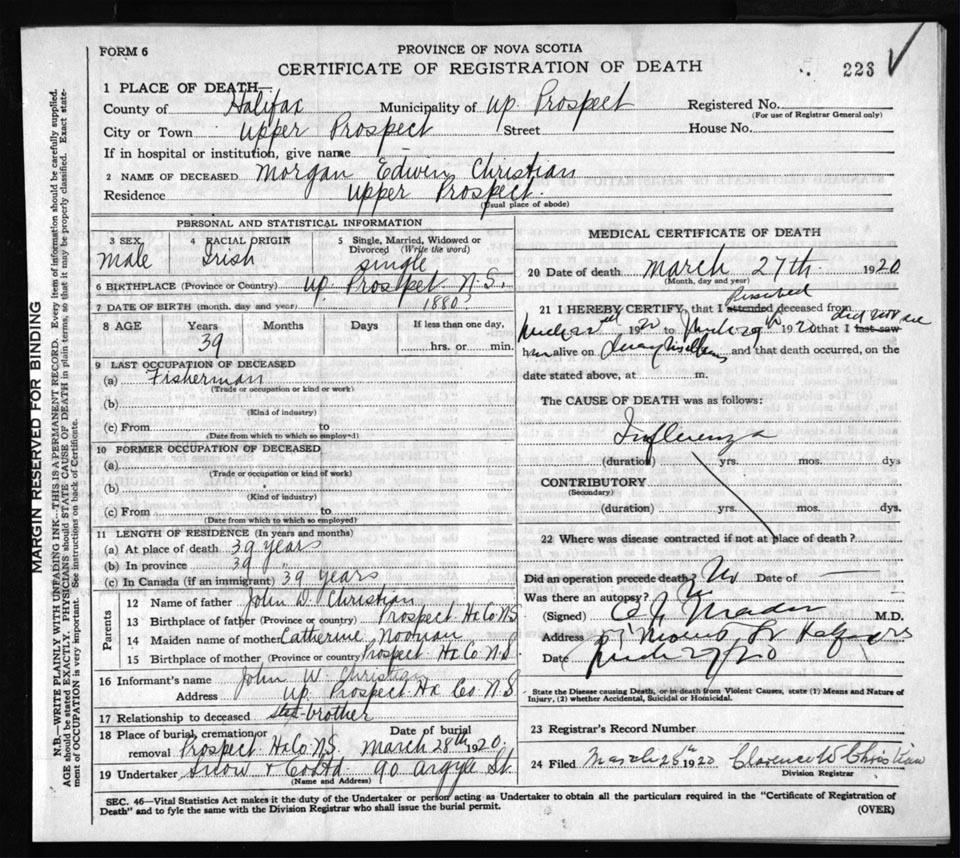 FORM 6
PROVINCE OF NOVA SCOTIA
CERTIFICATE OF REGISTRATION OF DEATH
223
1 PLACE OF DEATH—
County of Halifax Municipality of Up. Prospect Registered No.
(For use of Registrar General only)
City or Town Upper Prospect Street House No.
If in hospital or institution, give name
2 NAME OF DECEASED Morgan Edwin Christian
Residence Upper Prospect.
(Usual place of abode)
MARGIN RESERVED FOR BINDING
N.B.—WRITE PLAINLY WITH UNFADING INK—THIS IS A PERMANENT RECORD. Every item of information should be carefully supplied.
AGE should be stated EXACTLY. PHYSICIANS should STATE CAUSE OF DEATH in plain terms, so that it may be properly classified. Exact state-
ment of OCCUPATION is very important. See instructions on back of Certificate.
PERSONAL AND STATISTICAL INFORMATION
3 SEX 4 RACIAL ORIGIN 5 Single, Married, Widowed or
Divorced (Write the word)
Male Irish single
6 BIRTHPLACE (Province or Country) Up. Prospect N.S.
7 DATE OF BIRTH (month, day and year) 1880
8 AGE Years Months Days If less than one day,
39 hrs. or min.
9 LAST OCCUPATION OF DECEASED
(a) Fisherman
(Trade or occupation or kind or work)
(b)
(Kind of industry)
(c) From to
(Date from which to which so employed)
10 FORMER OCCUPATION OF DECEASED
(a)
(Trade or occupation or kind of work)
(b)
(Kind of industry)
(c) From to
(Date from which to which so employed)
11 LENGTH OF RESIDENCE (In years and months)
(a) At place of death 39 years
(b) In province 39 "
(c) In Canada (if an immigrant) 39 years
Parents
12 Name of father John D. Christian
13 Birthplace of father (Province or country) Prospect Ha Co NS
14 Maiden name of mother Catherine Noonan
15 Birthplace of mother (Province or country) Prospect Ha Co N S
16 Informant's name John W. Christian
Address Up. Prospect Ha Co N S
17 Relationship to deceased brother
18 Place of burial, cremation or Date of burial
removal Prospect Ha Co N.S. March 28th 1920.
19 Undertaker Snow & Co Ltd 90 Argyle St.
(Name and Address)
MEDICAL CERTIFICATE OF DEATH
20 Date of death March 27th 1920
(Month, day and year)
21 I HEREBY CERTIFY, that I attended deceased from
192 to 1920 that I last saw
alive on and that death occurred, on the
date stated above, at m.
The CAUSE OF DEATH was as follows:
Influenza
(duration) yrs. mos. dys
CONTRIBUTORY
(Secondary)
(duration) yrs. mos. dys.
22 Where was disease contracted if not at place of death?
Did an operation precede death? No Date of —
Was there an autopsy? No
(Signed) M.D.
Address 57 Morris St
Date
State the Disease causing Death, or in death from Violent Causes, state (1) Means and Nature of
Injury, (2) whether Accidental, Suicidal or Homicidal.
23 Registrar's Record Number
24 Filed March 1920 Clarence W Christian
Division Registrar
SEC. 46—Vital Statistics Act makes it the duty of the Undertaker or person acting as Undertaker to obtain all the particulars required in the "Certificate of Registration of
Death" and to fyle the same with the Division Registrar who shall issue the burial permit.
(OVER)